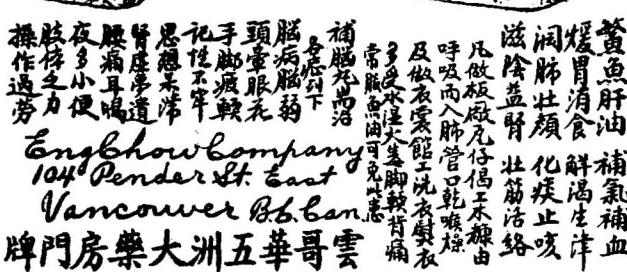 鰵魚肝油 補氣補血
煖胃消食 解渴生津
润肺壯顏 化痰止咳
滋陰益腎 壯筋活絡
凡做板廠瓦仔偈工木糠由
呼吸而入肺管口乾喉燥
及做衣裳館工洗衣熨衣
多受水湿火逼脚軟背痛
常服魚油可免此患
補腦丸耑治
各症列下
腦病腦弱
頭暈眼花
手脚疲軟
記性不牢
思想呆滞
腎虛夢遺
腰痛耳鳴
夜多小便
肢体乏力
操作過勞
Eng Chow Company
104 Pender St. East
Vancouver B.C. Can.
雲哥華五洲大藥房門牌